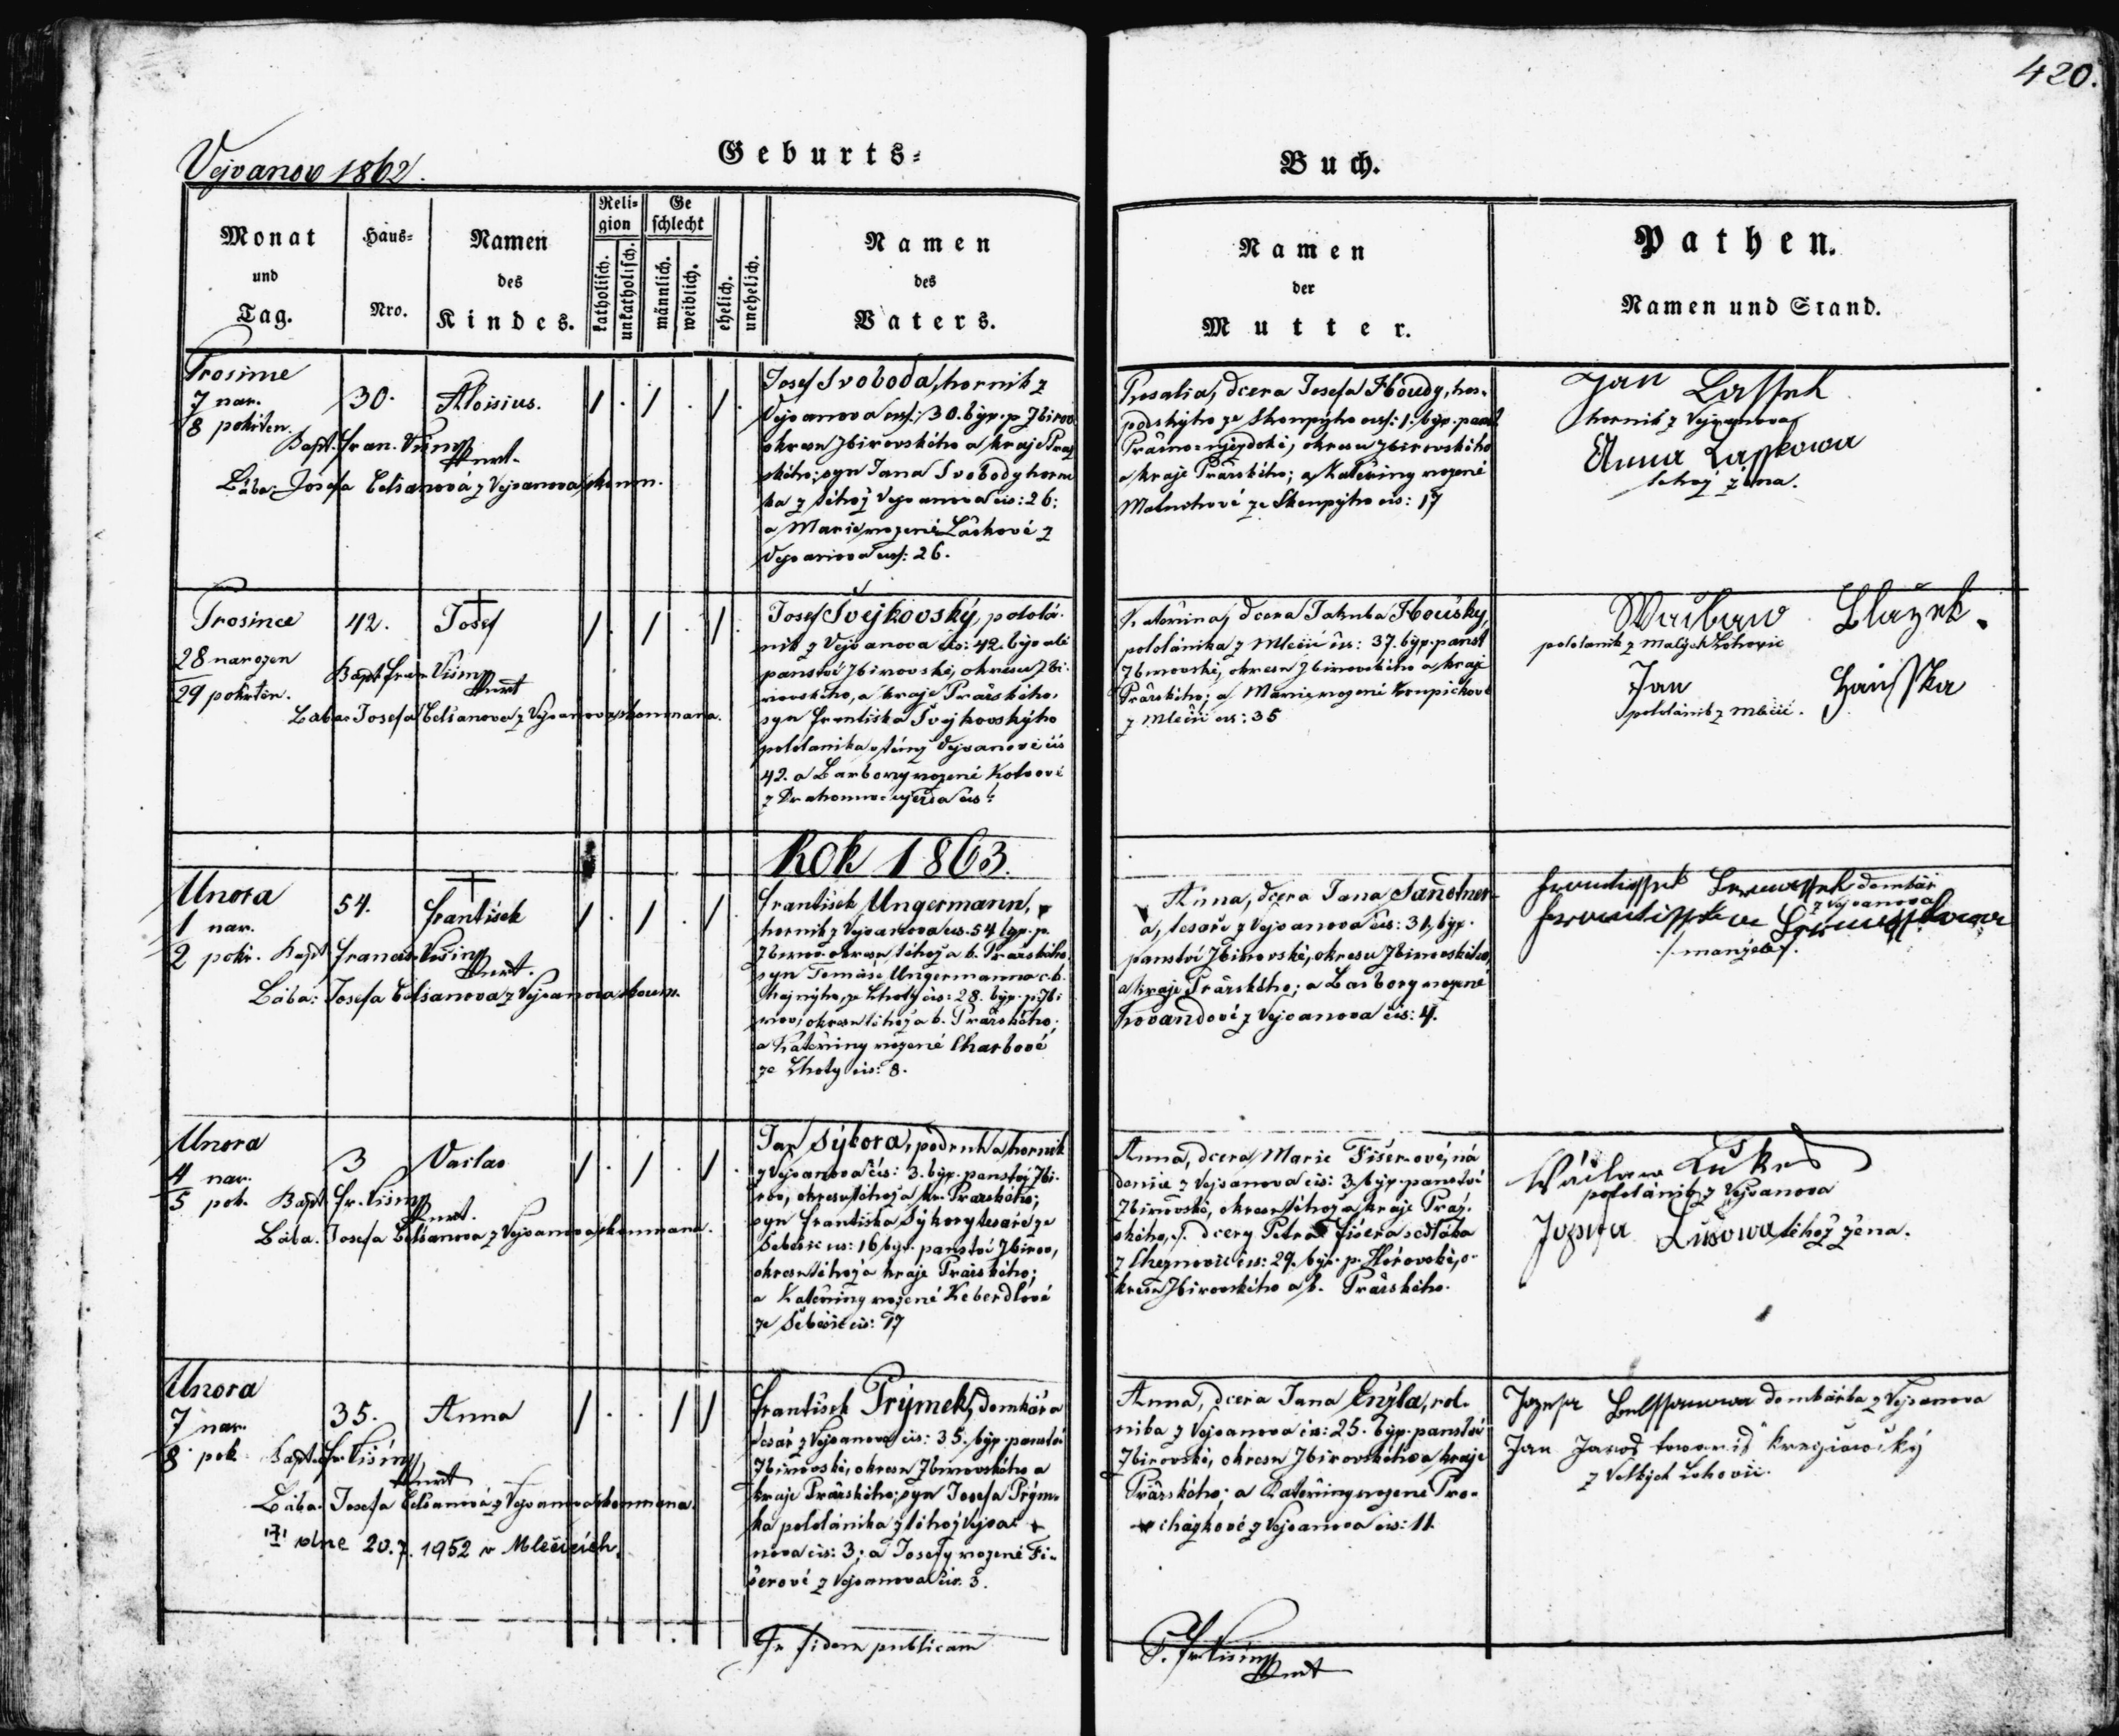 420.
Vejvanov 1862.
Geburts-
Buch.
Monat
und
Tag.
Haus-
Nro.
Namen
des
Kindes.
Reli-
gion
katholisch.
unkatholisch.
Ge
schlecht
männlich.
weiblich.
ehelich.
unehelich.
Namen
des
Vaters.
Namen
der
Mutter.
Pathen.
Namen und Stand.
Prosince
7 nar.
8 pokřten.
30.
Aloisius.
Bapt. Fran. Višiny
Bába: Josefa Čelišanová z Vejvanova zkoum.
Josef Svoboda, horník z
Vejvanova čís: 30. býv. p. Zbirov
okresu Zbirovského a kraje Praž
ského; syn Jana Svobody horní
ka z téhož Vejvanova čís: 26:
a Marie rozené Laškové z
Vejvanova čís: 26.
Rosalia, dcera Josefa Houdy, hos-
podského ze čís: 1: býv. panst
okresu Zbirovského
a kraje Pražského; a Kateřiny rozené
čís: 17
Jan Lassek
horník z Vejvanova
Anna Lasskowa
téhož žena.
Prosince
28 narozen
29 pokřtěn.
42.
Josef
Bapt. Fran. Višiny
Bába: Josefa Čelišanova z Vejvanova zkoumaná.
Josef Švejkovský, pololá-
ník z Vejvanova čís: 42. býválé
panství Zbirovské, okresu Zbi-
rovského, a kraje Pražského,
syn Františka Švejkovského
pololáníka v témž Vejvanově čís
42. a Barbory rozené Kotvové
z Drahoňova újezda čís:
Kateřina, dcera Jakuba Housky,
pololáníka z Mlečic čís: 37. býv. panst
Zbirovské, okresu Zbirovského a kraje
Pražského; a Marie rozené Krupičkové
z Mlečic čís: 35
Waclaw Blažek.
pololaník z Malých Lohovic
Jan Hausska
pololáník z Mlečic.
Rok 1863.
Unora
1 nar.
2 pokř.
54.
František
Bapt. Francis. Višiny
Bába: Josefa Čelišanova z Vejvanova zkoum.
František Ungermann,
horník z Vejvanova čís. 54 býv. p.
Zbirov. okresu téhož a k. Pražského,
syn Tomáše Ungermanna c. k.
hajného, ze Lhoty čís: 28. býv. p. Zbi
rov, okresu téhož a k. Pražského;
a Kateřiny rozené Charbové
ze Lhoty čís: 8.
Anna, dcera Jana Sandner-
a, tesaře z Vejvanova čís: 31, býv.
panství Zbirovské, okresu Zbirovského,
a kraje Pražského; a Barbory rozené
z Vejvanova čís: 4.
domkář
z Vejvanova
/: manželé :/.
Unora
4 nar.
5 pok.
3
Vaclav
Bapt. Fr. Višiny
Bába: Josefa Čelišanova z Vejvanova zkoumaná.
Jan Sýkora, podruh a horník
z Vejvanova čís: 3. býv. panství Zbi-
rov, okresu téhož a kr. Pražského;
syn Františka Sýkory tesaře ze
Sebečic čís: 16 býv. panství Zbirov,
okresu téhož a kraje Pražského;
a Kateřiny rozené Keberdlové
ze Sebečic čís: 17
Anna, dcera Marie Fišerové, ná
denice z Vejvanova čís: 3. býv. panství
Zbirovské, okresu téhož a kraje Praž-
ského, dcery Petra Fišera sedláka
z Cheznovic čís: 29. býv. p. Hořovské, o-
kresu Zbirovského a k. Pražského.
Wáclaw Lukeš
pololáník z Vejvanova
Jozefa téhož žena.
Unora
7 nar.
8 pok
35.
Anna
Bapt. Fr. Višiny
Bába: Josefa Čelišanová z Vejvanova zkoumaná.
dne 20.7. 1952 v Mlečicích.
František Prýmek, domkář a
tesař z Vejvanova čís: 35. býv. panství
Zbirovské, okresu Zbirovského a
kraje Pražského; syn Josefa Prým-
ka pololáníka z téhož Vejva-
nova čís: 3; a Josefy rozené Fi-
šerové z Vejvanova čís. 3.
Anna, dcera Jana Enýla, rol-
níka z Vejvanova čís: 25. býv. panství
Zbirovské, okresu Zbirovského a kraje
Pražského; a Kateřiny rozené Pro-
cházkové z Vejvanova čís: 11.
Jozefa domkářka z Vejvanova
Jan Jaroš towariš Kregičowský
z Velkých Lohovic.
In fidem publicam
P. Fr. Višiny